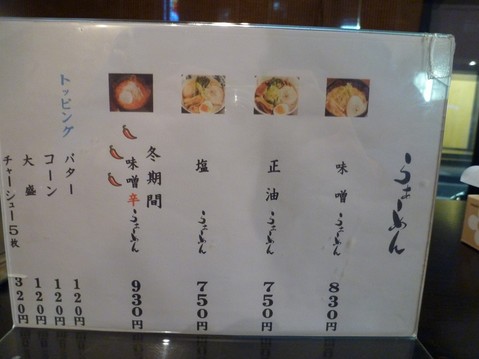 らぁーめん
味噌らぁーめん 830円
正油らぁーめん 750円
塩らぁーめん 750円
冬期間
味噌辛らぁーめん 930円
トッピング
バター 120円
コーン 120円
大盛 120円
チャーシュー5枚 320円